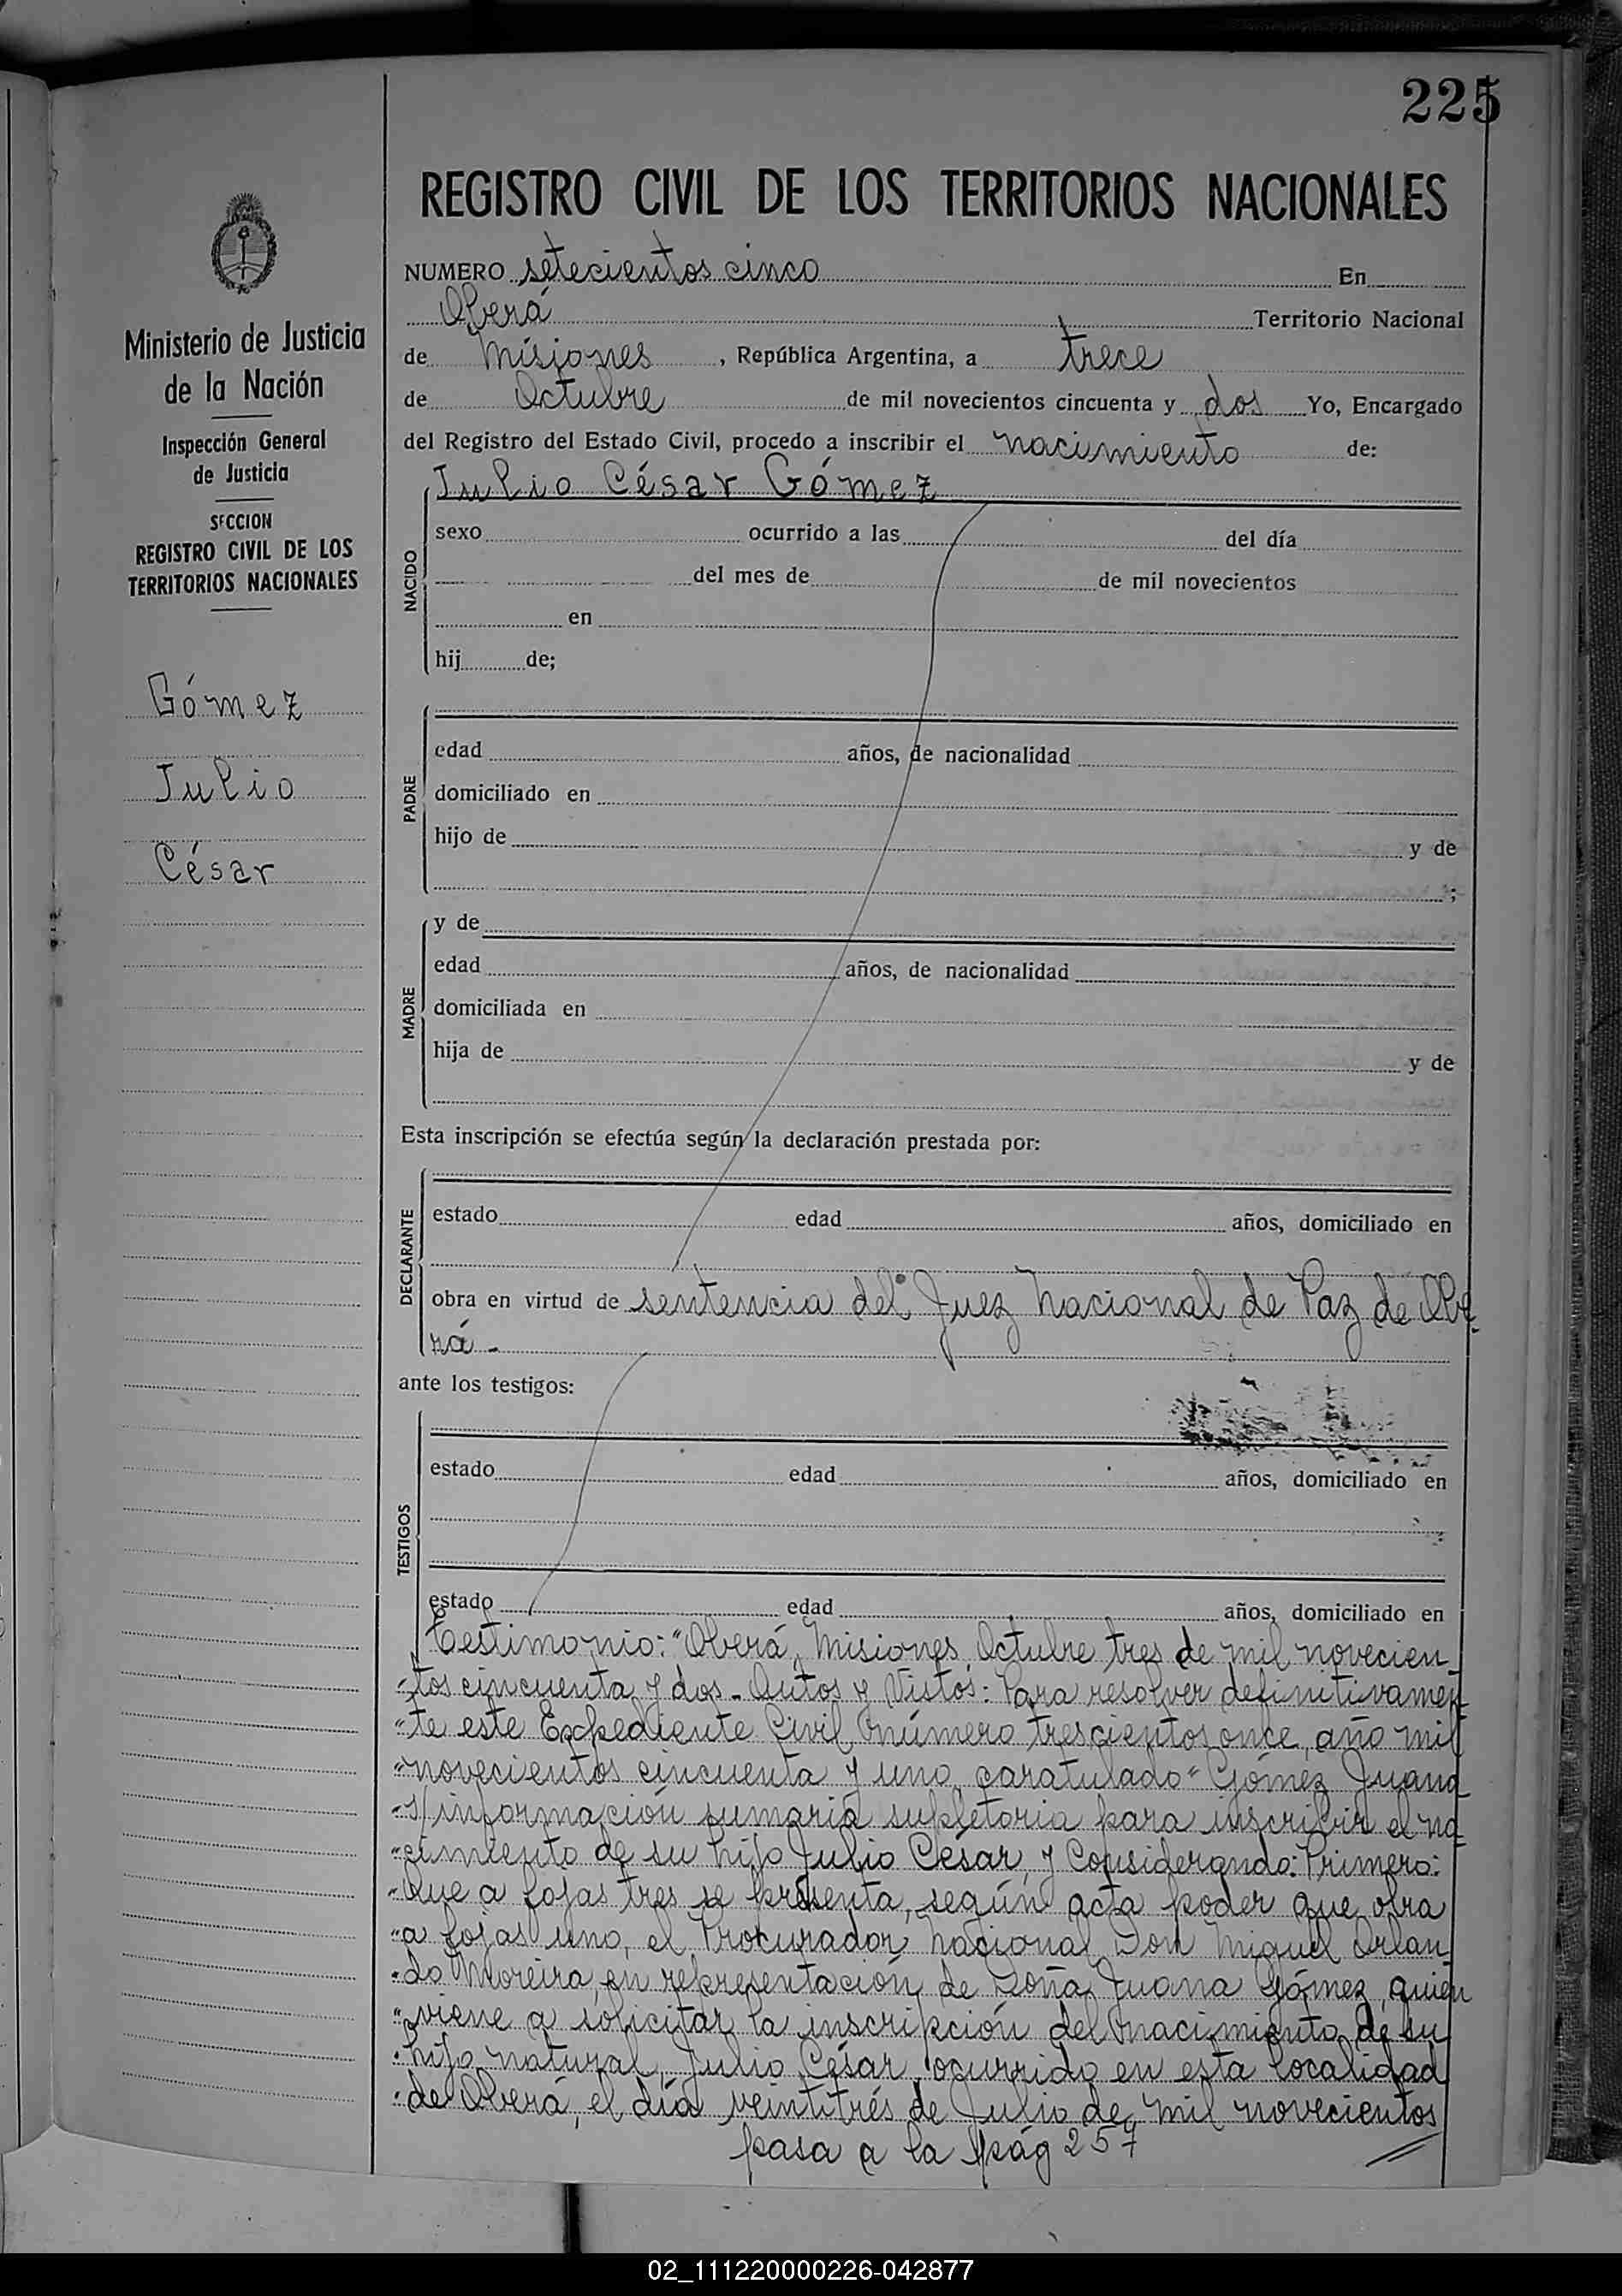 225
REGISTRO CIVIL DE LOS TERRITORIOS NACIONALES
Ministerio de Justicia
de la Nación
Inspección General
de Justicia
SECCION
REGISTRO CIVIL DE LOS
TERRITORIOS NACIONALES
Gómez
Julio
César
NUMERO setecientos cinco En
Oberá Territorio Nacional
de Misiones, República Argentina, a trece
de Octubre de mil novecientos cincuenta y dos Yo, Encargado
del Registro del Estado Civil, procedo a inscribir el nacimiento de:
Julio César Gómez
NACIDO
sexo ocurrido a las del día
del mes de de mil novecientos
en
hij de;
PADRE
edad años, de nacionalidad
domiciliado en
hijo de y de
;
MADRE
y de
edad años, de nacionalidad
domiciliada en
hija de y de
Esta inscripción se efectúa según la declaración prestada por:
DECLARANTE
estado edad años, domiciliado en
obra en virtud de sentencia del Juez Nacional de Paz de Obe-
rá.-
ante los testigos:
TESTIGOS
estado edad años, domiciliado en
estado edad años, domiciliado en
Testimonio: "Oberá, Misiones, Octubre tres de mil novecien-
"tos cincuenta y dos.- Autos y Vistos: Para resolver definitivamen-
"te este Expediente Civil número trescientos once, año mil
"novecientos cincuenta y uno, caratulado "Gómez Juana
"s/información sumaria supletoria para inscribir el na-
"cimiento de su hijo Julio César, y Considerando: Primero:
"Que a fojas tres se presenta, según acta poder que obra
"a fojas uno, el Procurador Nacional Don Miguel Orlan-
"do Moreira, en representación de Doña Juana Gómez, quien
"viene a solicitar la inscripción del nacimiento de su
"hijo natural, Julio César, ocurrido en esta localidad
"de Oberá, el día veintitrés de Julio de mil novecientos
pasa a la pág 257
02_111220000226-042877